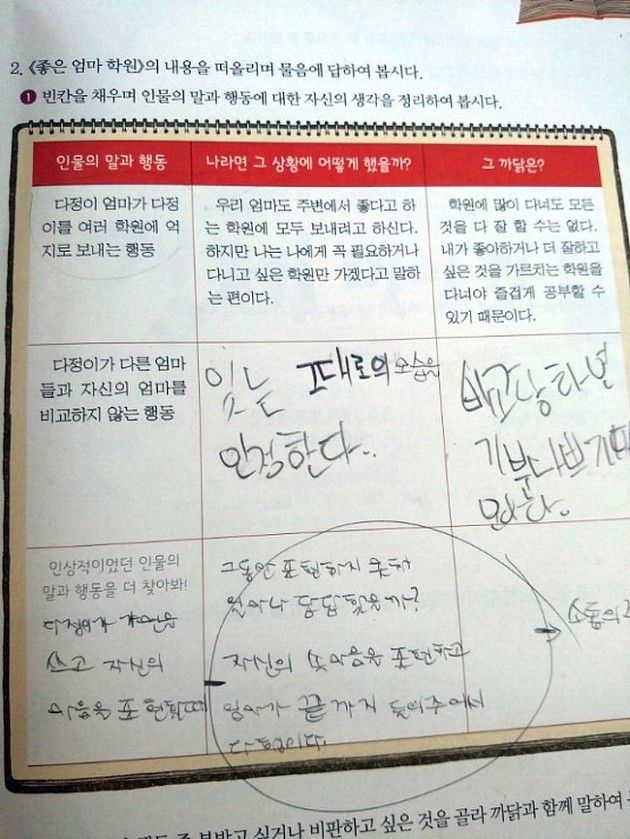 2. 《좋은 엄마 학원》의 내용을 떠올리며 물음에 답하여 봅시다.
1 빈칸을 채우며 인물의 말과 행동에 대한 자신의 생각을 정리하여 봅시다.
인물의 말과 행동
나라면 그 상황에 어떻게 했을까?
그 까닭은?
다정이 엄마가 다정
이를 여러 학원에 억
지로 보내는 행동
우리 엄마도 주변에서 좋다고 하
는 학원에 모두 보내려고 하신다.
하지만 나는 나에게 꼭 필요하거나
다니고 싶은 학원만 가겠다고 말하
는 편이다.
학원에 많이 다녀도 모든
것을 다 잘 할 수는 없다.
내가 좋아하거나 더 잘하고
싶은 것을 가르치는 학원을
다녀야 즐겁게 공부할 수
있기 때문이다.
다정이가 다른 엄마
들과 자신의 엄마를
비교하지 않는 행동
있는 그대로의 모습을
인정한다..
비교당하면
기분나쁘기때
문이다.
인상적이었던 인물의
말과 행동을 더 찾아봐!
다정이가
쓰고 자신의
마음을 표현할때
그동안 표현하지 못해
얼마나 답답했을까?
자신의 속마음을 표현하고
엄마가 끝까지 들어주어서
다행이다.
소통의
싶거나 비판하고 싶은 것을 골라 까닭과 함께 말하여